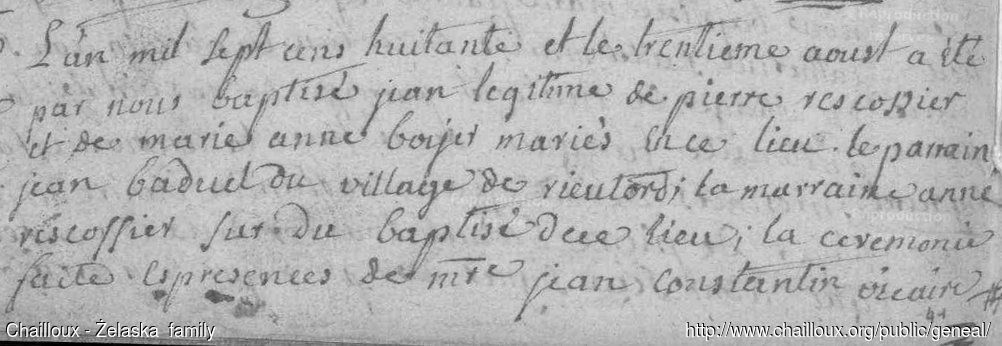 L'an mil sept cens huitante et le trentieme aoust a été
par nous baptisé jean legitime de pierre rescossier
et de marie anne boyer mariés en ce lieu. le parrain
jean baduel du village de rieutord; la marraine anne
rescossier sur du baptisé dece lieu; la ceremonie
faite es presences de mtre jean constantin vicaire #
Chailloux - Żelaska family
http://www.chailloux.org/public/geneal/